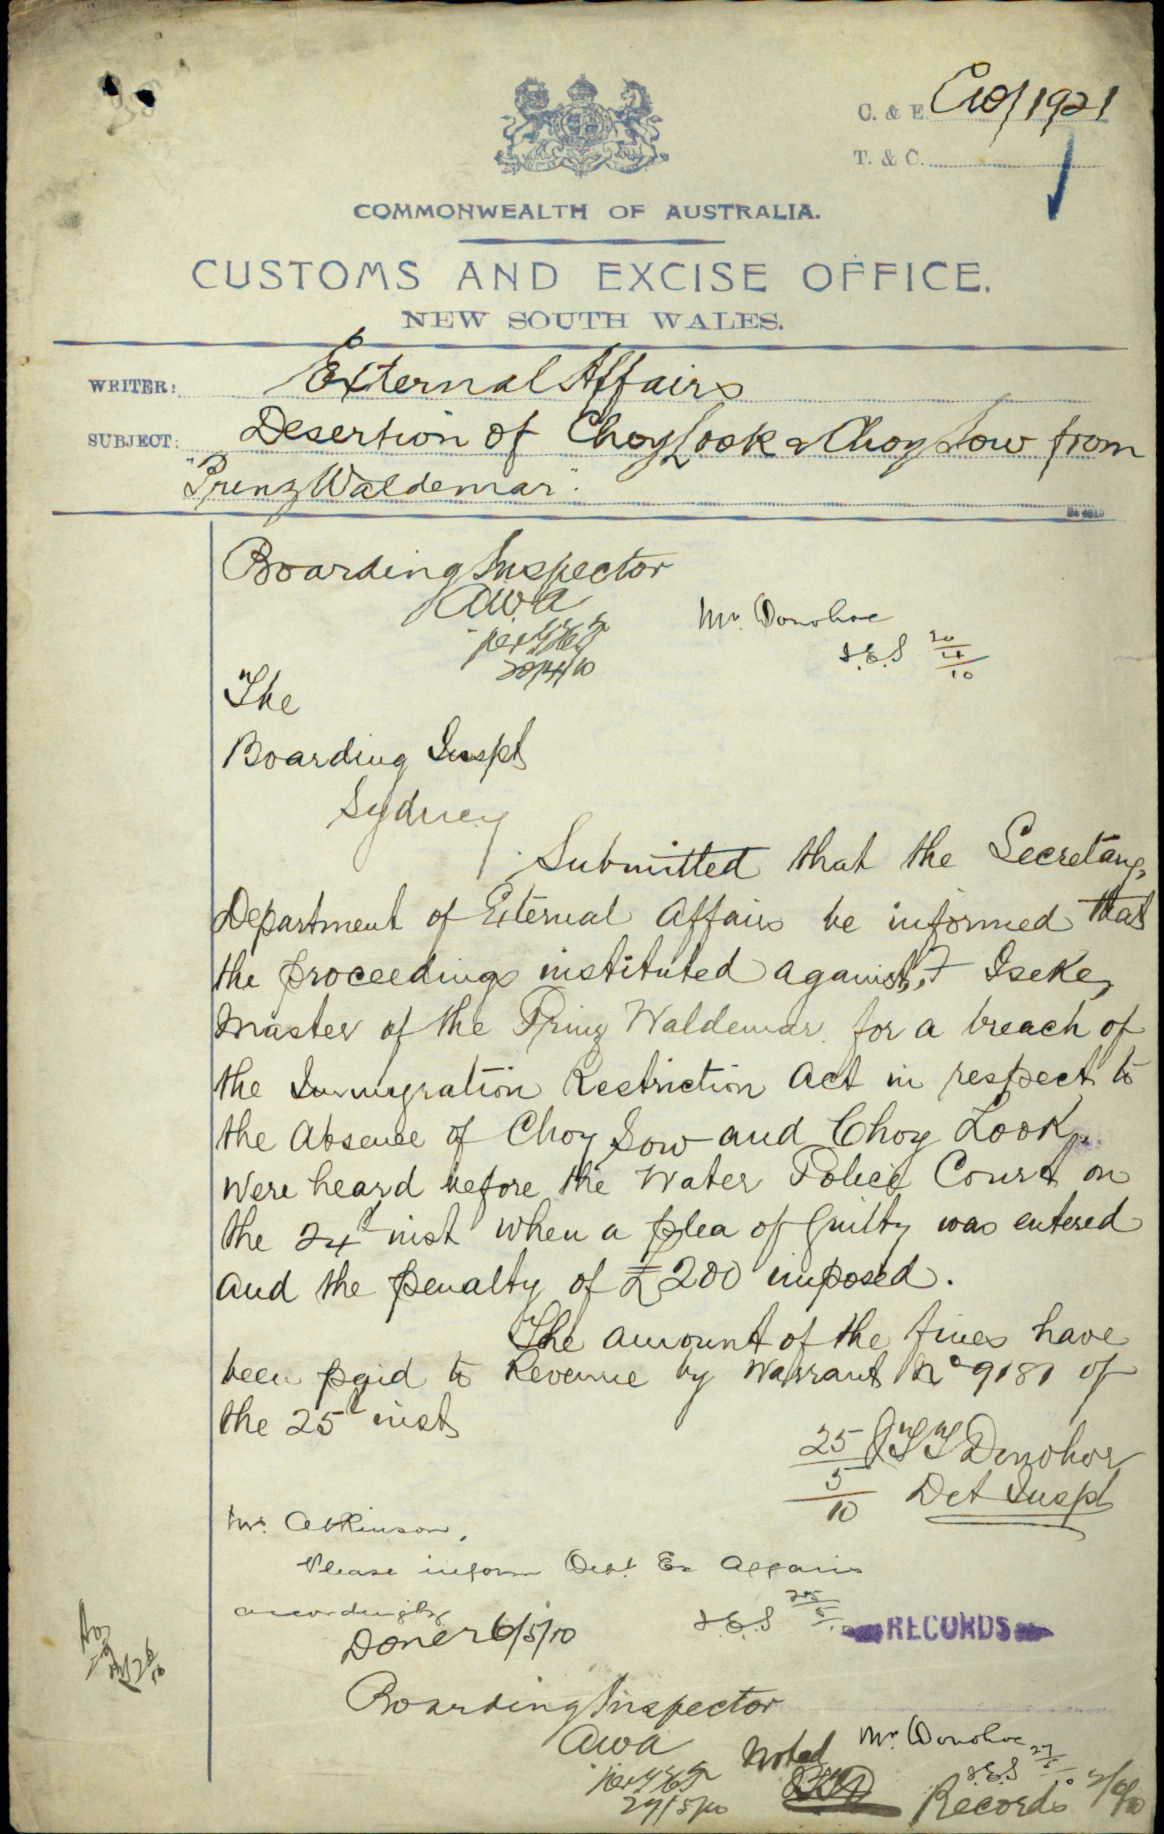 C. & E. C10/1921
T. & C.
COMMONWEALTH OF AUSTRALIA.
CUSTOMS AND EXCISE OFFICE.
NEW SOUTH WALES.
WRITER: External Affairs
SUBJECT: Desertion of Choy Look & Choy Sow from
"Prinz Waldemar".
Boarding Inspector
AWA
20/4/10
Mr. Donohoe
J.E.S 20/4/10
The
Boarding Inspt
Sydney
Submitted that the Secretary,
Department of External Affairs be informed that
the proceedings instituted against, F Iseke,
Master of the Prinz Waldemar for a breach of
the Immigration Restriction Act in respect to
the absence of Choy Sow and Choy Look,
were heard before the Water Police Court on
the 24th inst when a plea of guilty was entered
and the penalty of £200 imposed.
The amount of the fines have
been paid to Revenue by Warrant No 9181 of
the 25th inst
25/5/10 Donohoe
Det Inspt
Mr. Atkinson,
Please inform Dept. Ex Affairs
accordingly
J.E.S 25/5/10
Done 26/5/10
RECORDS
Boarding Inspector
AWA
27/5/10
Noted
Mr. Donohoe
J.E.S 27/5/10
Records